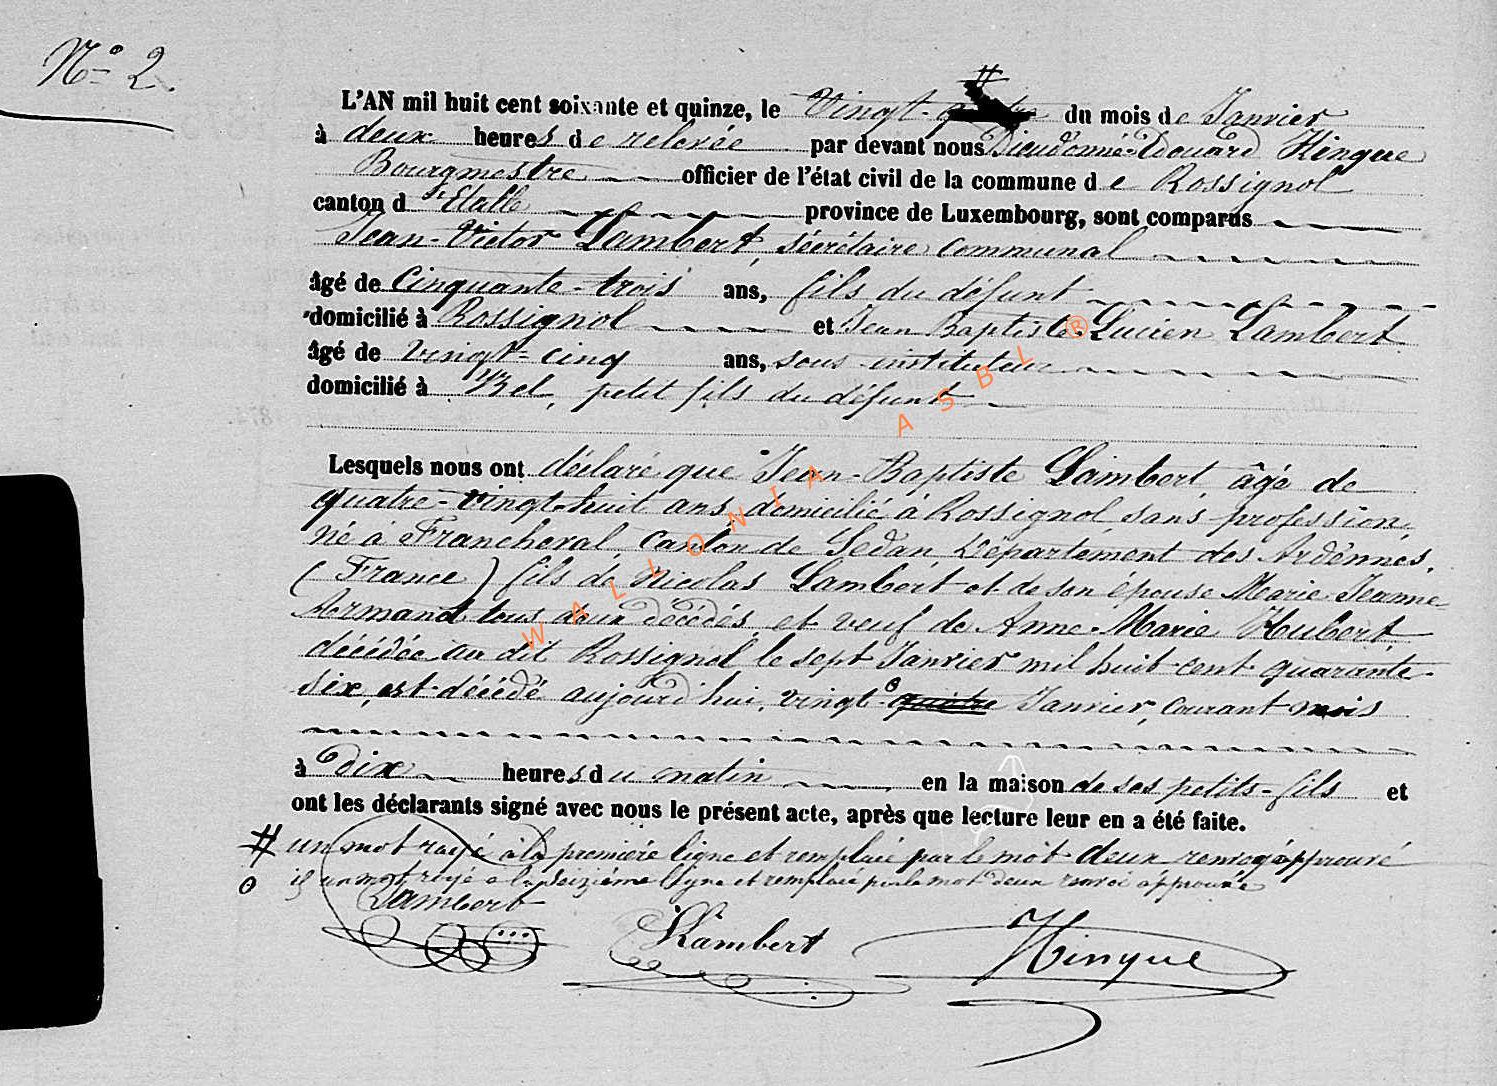 N° 2.
L'AN mil huit cent soixante et quinze, le Vingt-quatre # du mois de Janvier
à deux heures de relevée par devant nous Dieudonné-Edouard Hinque
Bourgmestre officier de l'état civil de la commune de Rossignol
canton d'Etalle province de Luxembourg, sont comparus
Jean-Victor Lambert, sécrétaire communal
âgé de Cinquante-trois ans, fils du défunt
domicilié à Rossignol et Jean Baptiste Lucien Lambert
âgé de vingt-cinq ans, sous instituteur
domicilié à Bel, petit fils du défunt
Lesquels nous ont déclaré que Jean-Baptiste Lambert, âgé de
quatre-vingt-huit ans, domicilié à Rossignol, sans profession,
né à Francheval, Canton de Sedan, Département des Ardennes,
(France) fils de Nicolas Lambert et de son épouse Marie Jeanne
Armand tous deux décédés, et veuf de Anne-Marie Hubert,
décédée au dit Rossignol le sept Janvier mil huit-cent quarante-
six, est décédé aujourd'hui, vingt-quatre o Janvier, courant mois
à Dix heures du matin en la maison de ses petits-fils et
ont les déclarants signé avec nous le présent acte, après que lecture leur en a été faite.
# un mot rayé à la première ligne et remplacé par le mot deux renvoi approuvé
o un mot rayé a la seizième ligne et remplacé par le mot deux renvoi approuvé
Lambert
Lambert
Hinque
WALLONIA ASBL ®